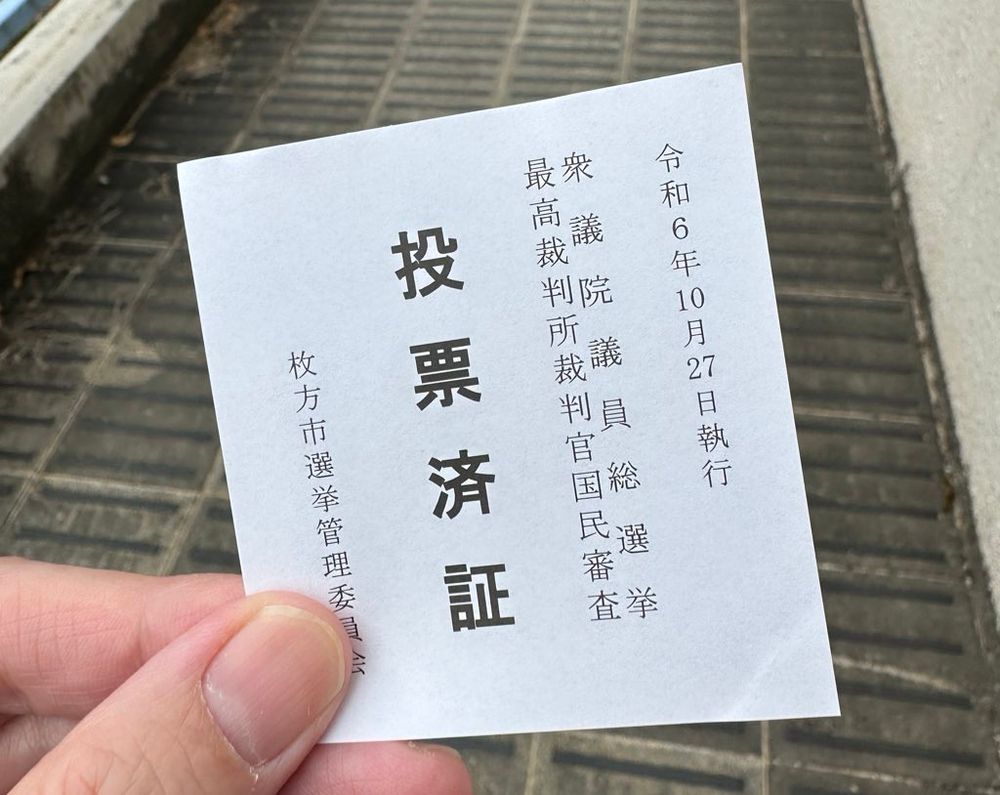 令和6年10月27日執行
衆議院議員総選挙
最高裁判所裁判官国民審査
投票済証
枚方市選挙管理委員会